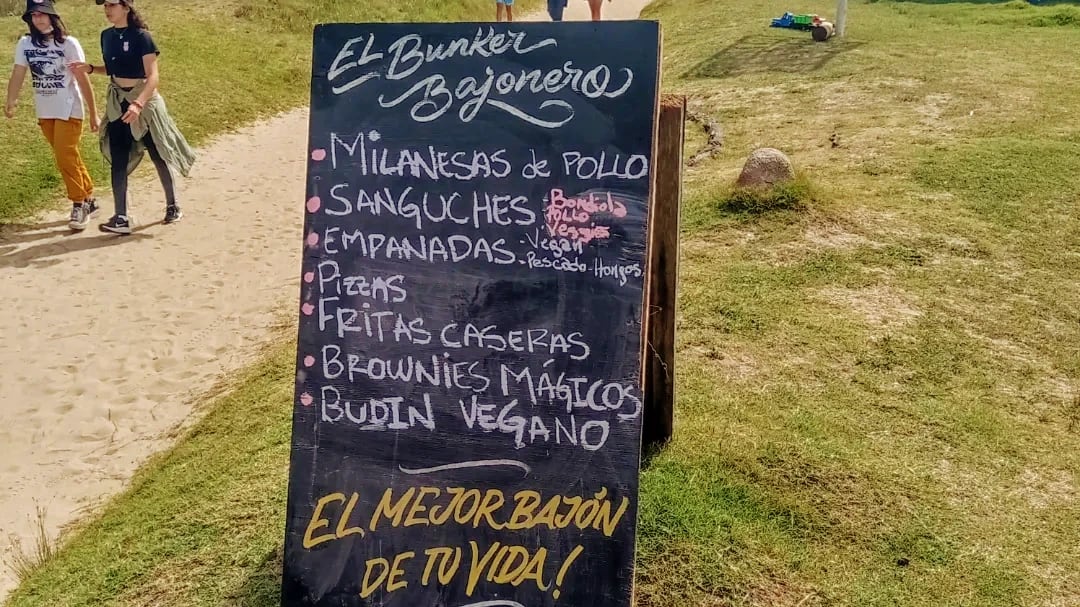 El Bunker
Bajonero
Milanesas de Pollo
Sanguches -Bondiola
Pollo
Veggies
Empanadas -Vegan
-Pescado-Hongos
Pizzas
Fritas caseras
Brownies Mágicos
Budin Vegano
El Mejor Bajón
de tu Vida!